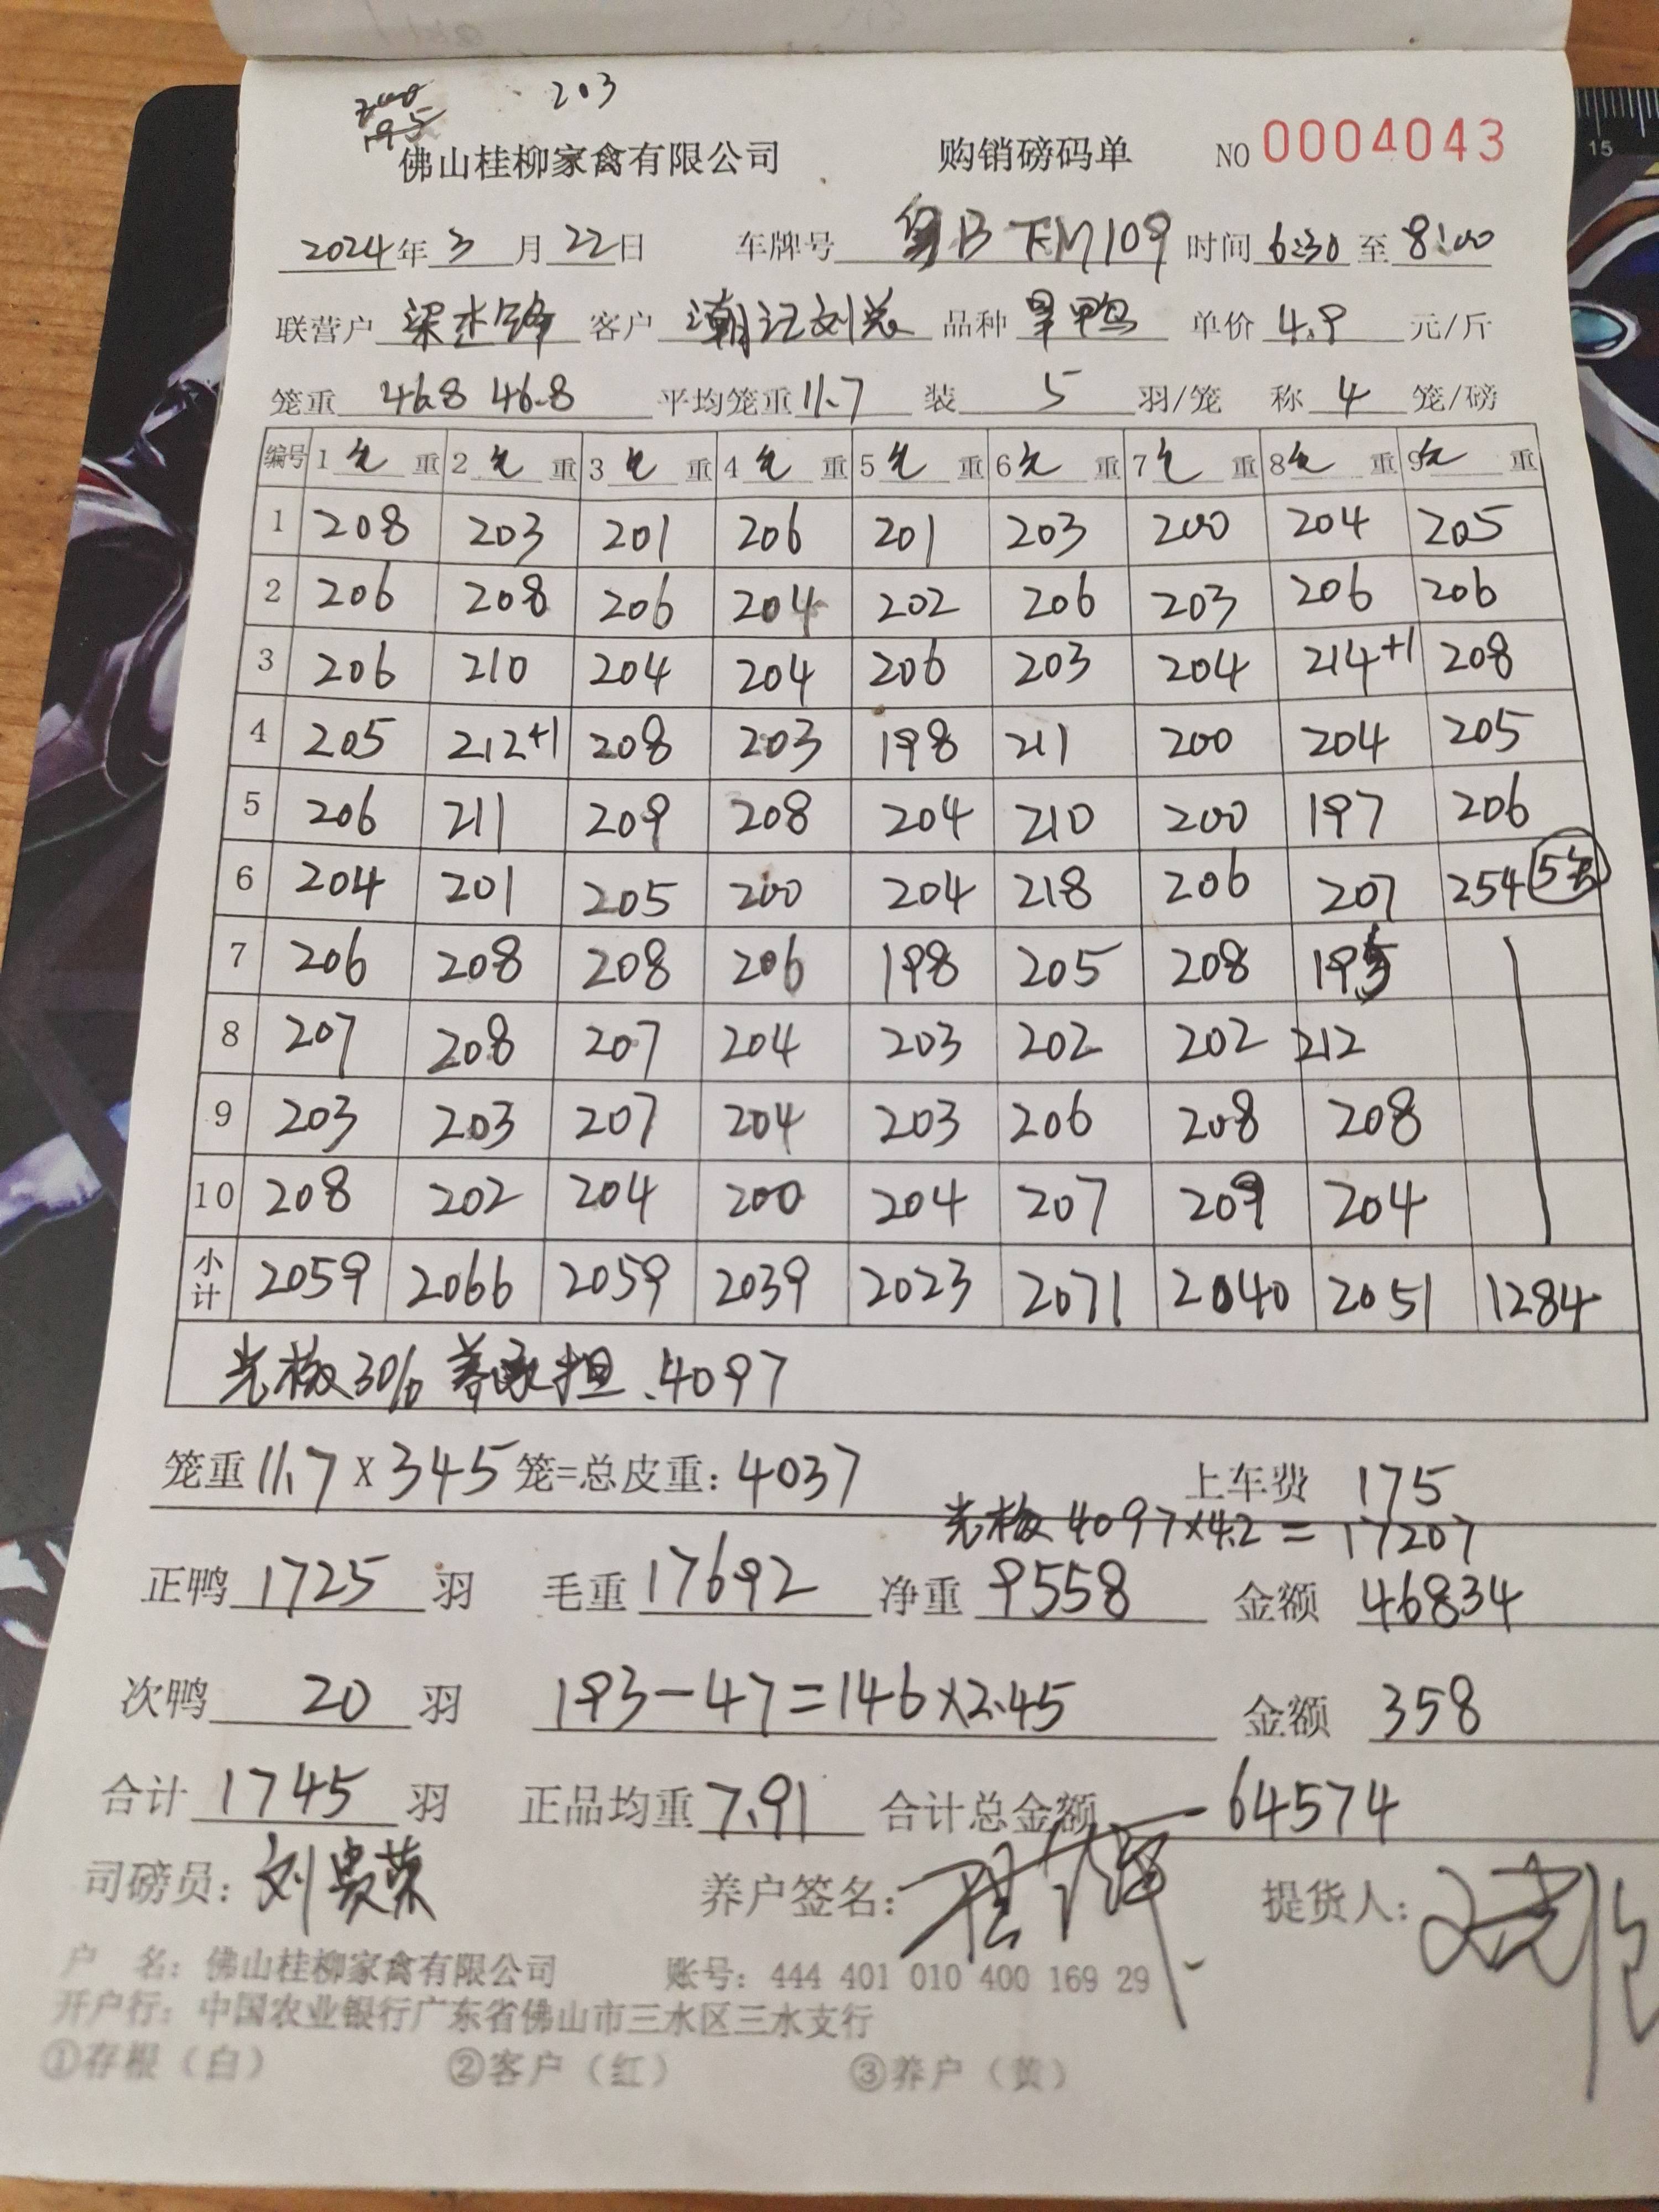 203
佛山桂柳家禽有限公司 购销磅码单 NO 0004043
2024年 3 月 22日 车牌号 粤B FM109 时间 6:30 至 8:00
联营户 梁志锋 客户 潮记刘总 品种 旱鸭 单价 4.9 元/斤
笼重 46.8 46.8 平均笼重 11.7 装 5 羽/笼 称 4 笼/磅
编号 1 毛 重 2 毛 重 3 毛 重 4 毛 重 5 毛 重 6 毛 重 7 毛 重 8 毛 重 9 毛 重
1 208 203 201 206 201 203 200 204 205
2 206 208 206 204 202 206 203 206 206
3 206 210 204 204 206 203 204 214+1 208
4 205 212+1 208 203 198 211 200 204 205
5 206 211 209 208 204 210 200 197 206
6 204 201 205 200 204 218 206 207 254 5笼
7 206 208 208 206 198 205 208 195
8 207 208 207 204 203 202 202 212
9 203 203 207 204 203 206 208 208
10 208 202 204 200 204 207 209 204
小计 2059 2066 2059 2039 2023 2071 2040 2051 1284
光板30% 养家担 4097
笼重 11.7 x 345 笼=总皮重: 4037 上车费 175
光板 4097×4.2 = 17207
正鸭 1725 羽 毛重 17692 净重 9558 金额 46834
次鸭 20 羽 193-47=146×2.45 金额 358
合计 1745 羽 正品均重 7.91 合计总金额 64574
司磅员: 刘贵荣 养户签名: 提货人:
户 名: 佛山桂柳家禽有限公司 账号: 444 401 010 400 169 29
开户行: 中国农业银行广东省佛山市三水区三水支行
①存根（白） ②客户（红） ③养户（黄）